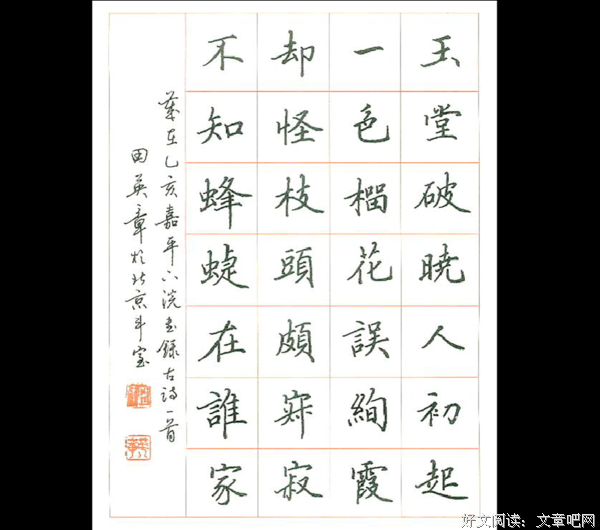 玉堂破暁人初起
一色榴花誤絢霞
却怪枝頭頗寂
不知蜂蜨在誰家
歲在乙亥嘉平下浣書錄古詩一首
田英章於北京斗室
好文阅读：文章吧网